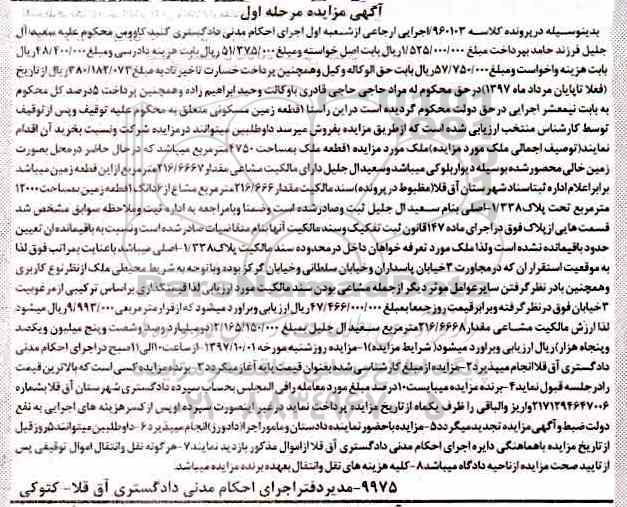 آگهی مزایده مرحله اول
بدینوسیله در پرونده کلاسه ۹۶۰۱۰۳/اجرایی ارجاعی از شعبه اول اجرای احکام مدنی دادگستری گنبد کاووس محکوم علیه سعید آل
جلیل فرزند حامد بپرداخت مبلغ ۱/۵۲۵/۰۰۰/۰۰۰ ریال بابت اصل خواسته و مبلغ ۵۱/۳۷۵/۰۰۰ ریال بابت هزینه دادرسی و مبلغ ۴۸/۴۰۰/۰۰۰ ریال
بابت هزینه واخواست و مبلغ ۵۷/۷۵۰/۰۰۰ ریال بابت حق الوکاله وکیل و همچنین پرداخت خسارت تاخیر تادیه مبلغ ۳۸۰/۱۸۲/۰۷۳ ریال از تاریخ
(فعلا تا پایان مرداد ماه ۱۳۹۷) در حق محکوم له مراد حاجی حاجی قادری با وکالت وحید ابراهیم زاده و همچنین پرداخت ۵ درصد کل محکوم
به بابت نیمعشر اجرایی در حق دولت محکوم گردیده است در این راستا ۱ قطعه زمین مسکونی متعلق به محکوم علیه توقیف و پس از توقیف
توسط کارشناس منتخب ارزیابی شده است که از طریق مزایده بفروش میرسد داوطلبین میتوانند در مزایده شرکت و نسبت بخرید آن اقدام
نمایند (توصیف اجمالی ملک مورد مزایده) ملک مورد مزایده ۱ قطعه ملک بمساحت ۴۷۵۰ متر مربع میباشد که در حال حاضر در محل بصورت
زمین خالی محصور شده بوسیله دیوار بلوکی میباشد و سعید ال جلیل دارای مالکیت مشاعی مقدار ۲۱۶/۶۶۶۷ متر مربع از این قطعه زمین میباشد
برابر اعلام اداره ثبت اسناد شهرستان آق قلا (مظبوط در پرونده) سند مالکیت مقدار ۲۱۶/۶۶۶ متر مربع مشاع از ۶ دانگ ۱ قطعه زمین بمساحت ۱۲۰۰۰
متر مربع تحت پلاک ۱/۳۳۸-اصلی بنام سعید ال جلیل ثبت و صادر شده است و ضمنا و با مراجعه به اداره ثبت و ملاحظه سوابق مشخص شد
قسمت هایی از پلاک فوق در اجرای ماده ۱۴۷ قانون ثبت تفکیک و سند مالکیت آنها بنام متقاضیات صادر شده است و نسبت به باقیمانده ان تعیین
حدود باقیمانده نشده است و لذا ملک مورد تعرفه خواهان داخل در محدوده سند مالکیت پلاک ۱/۳۳۸-اصلی میباشد با عنایت بمراتب فوق لذا
به موقعیت استقرار ان که در مجاورت ۳ خیابان پاسداران و خیابان سلطانی و خیابان گرکز بوده و با توجه به شریط محیطی ملک از نظر نوع کاربری
و همچنین با در نظر گرفتن سایر عوامل موثر دیگر از جمله مشاعی بودن سند مالکیت مورد ارزیابی لذا قیمتگذاری براساس ترکیبی از مرغوبیت
۳ خیابان فوق در نظر گرفته و برابر قیمت روز جمعا بمبلغ ۴۷/۴۶۶/۰۰۰/۰۰۰ ریال ارزیابی و براورد میشود که از قرار متر مربعی ۹/۹۹۳/۰۰۰ ریال میشود
لذا ارزش مالکیت مشاعی مقدار ۲۱۶/۶۶۶۸ متر مربع سعید ال جلیل بمبلغ ۲/۱۶۵/۱۵۰/۰۰۰ (دو میلیارد و صد و شصت و پنج میلیون و یکصد
و پنجاه هزار) ریال ارزیابی و براورد میشود (شرایط مزایده) ۱-مزایده روز شنبه مورخه ۱۳۹۷/۱۰/۰۱-از ساعت ۱۰ الی ۱۱ صبح در اجرای احکام مدنی
دادگستری آق قلا انجام میپذیرد ۲-مزایده از مبلغ کارشناسی شده بعنوان قیمت پایه آغاز میگردد ۳-برنده مزایده کسی است که بالاترین قیمت
را در جلسه قبول نماید ۴-برنده مزایده میبایست ۱۰ درصد مبلغ مورد معامله را فی المجلس بحساب سپرده دادگستری شهرستان آق قلا بشماره
۲۱۷۱۲۹۴۶۴۷۰۰۶ واریز و الباقی را ظرف یکماه از تاریخ مزایده پرداخت نماید در غیر اینصورت سپرده او پس از کسر هزینه های اجرایی به نفع
دولت ضبط و آگهی مزایده تجدید میگردد ۵-مزایده با حضور نماینده دادستان و مامور اجرا (دادورز) انجام میپذیرد ۶-داوطلبین میتوانند ۵ روز قبل
از تاریخ مزایده با هماهنگی دایره اجرای احکام مدنی دادگستری آق قلا از اموال مذکور بازدید نمایند ۷-هرگونه نقل و انتقال اموال توقیفی پس
از تایید صحت مزایده از ناحیه دادگاه میباشد ۸-کلیه هزینه های نقل و انتقال بعهده برنده مزایده میباشد.
۹۹۷۵-مدیر دفتر اجرای احکام مدنی دادگستری آق قلا-کتوکی